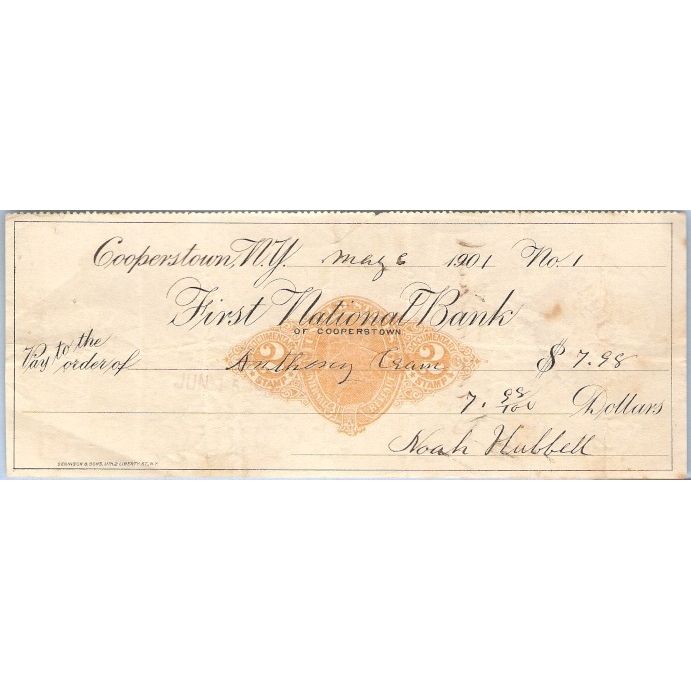 Cooperstown, N.Y. May 6 1901 No. 1
First National Bank
OF COOPERSTOWN
Pay to the order of Anthony Cram $ 7.98
7. 98/100 Dollars
Noah Hubbell
DOCUMENTARY 2 STAMP DOCUMENTARY 2 STAMP
JUN